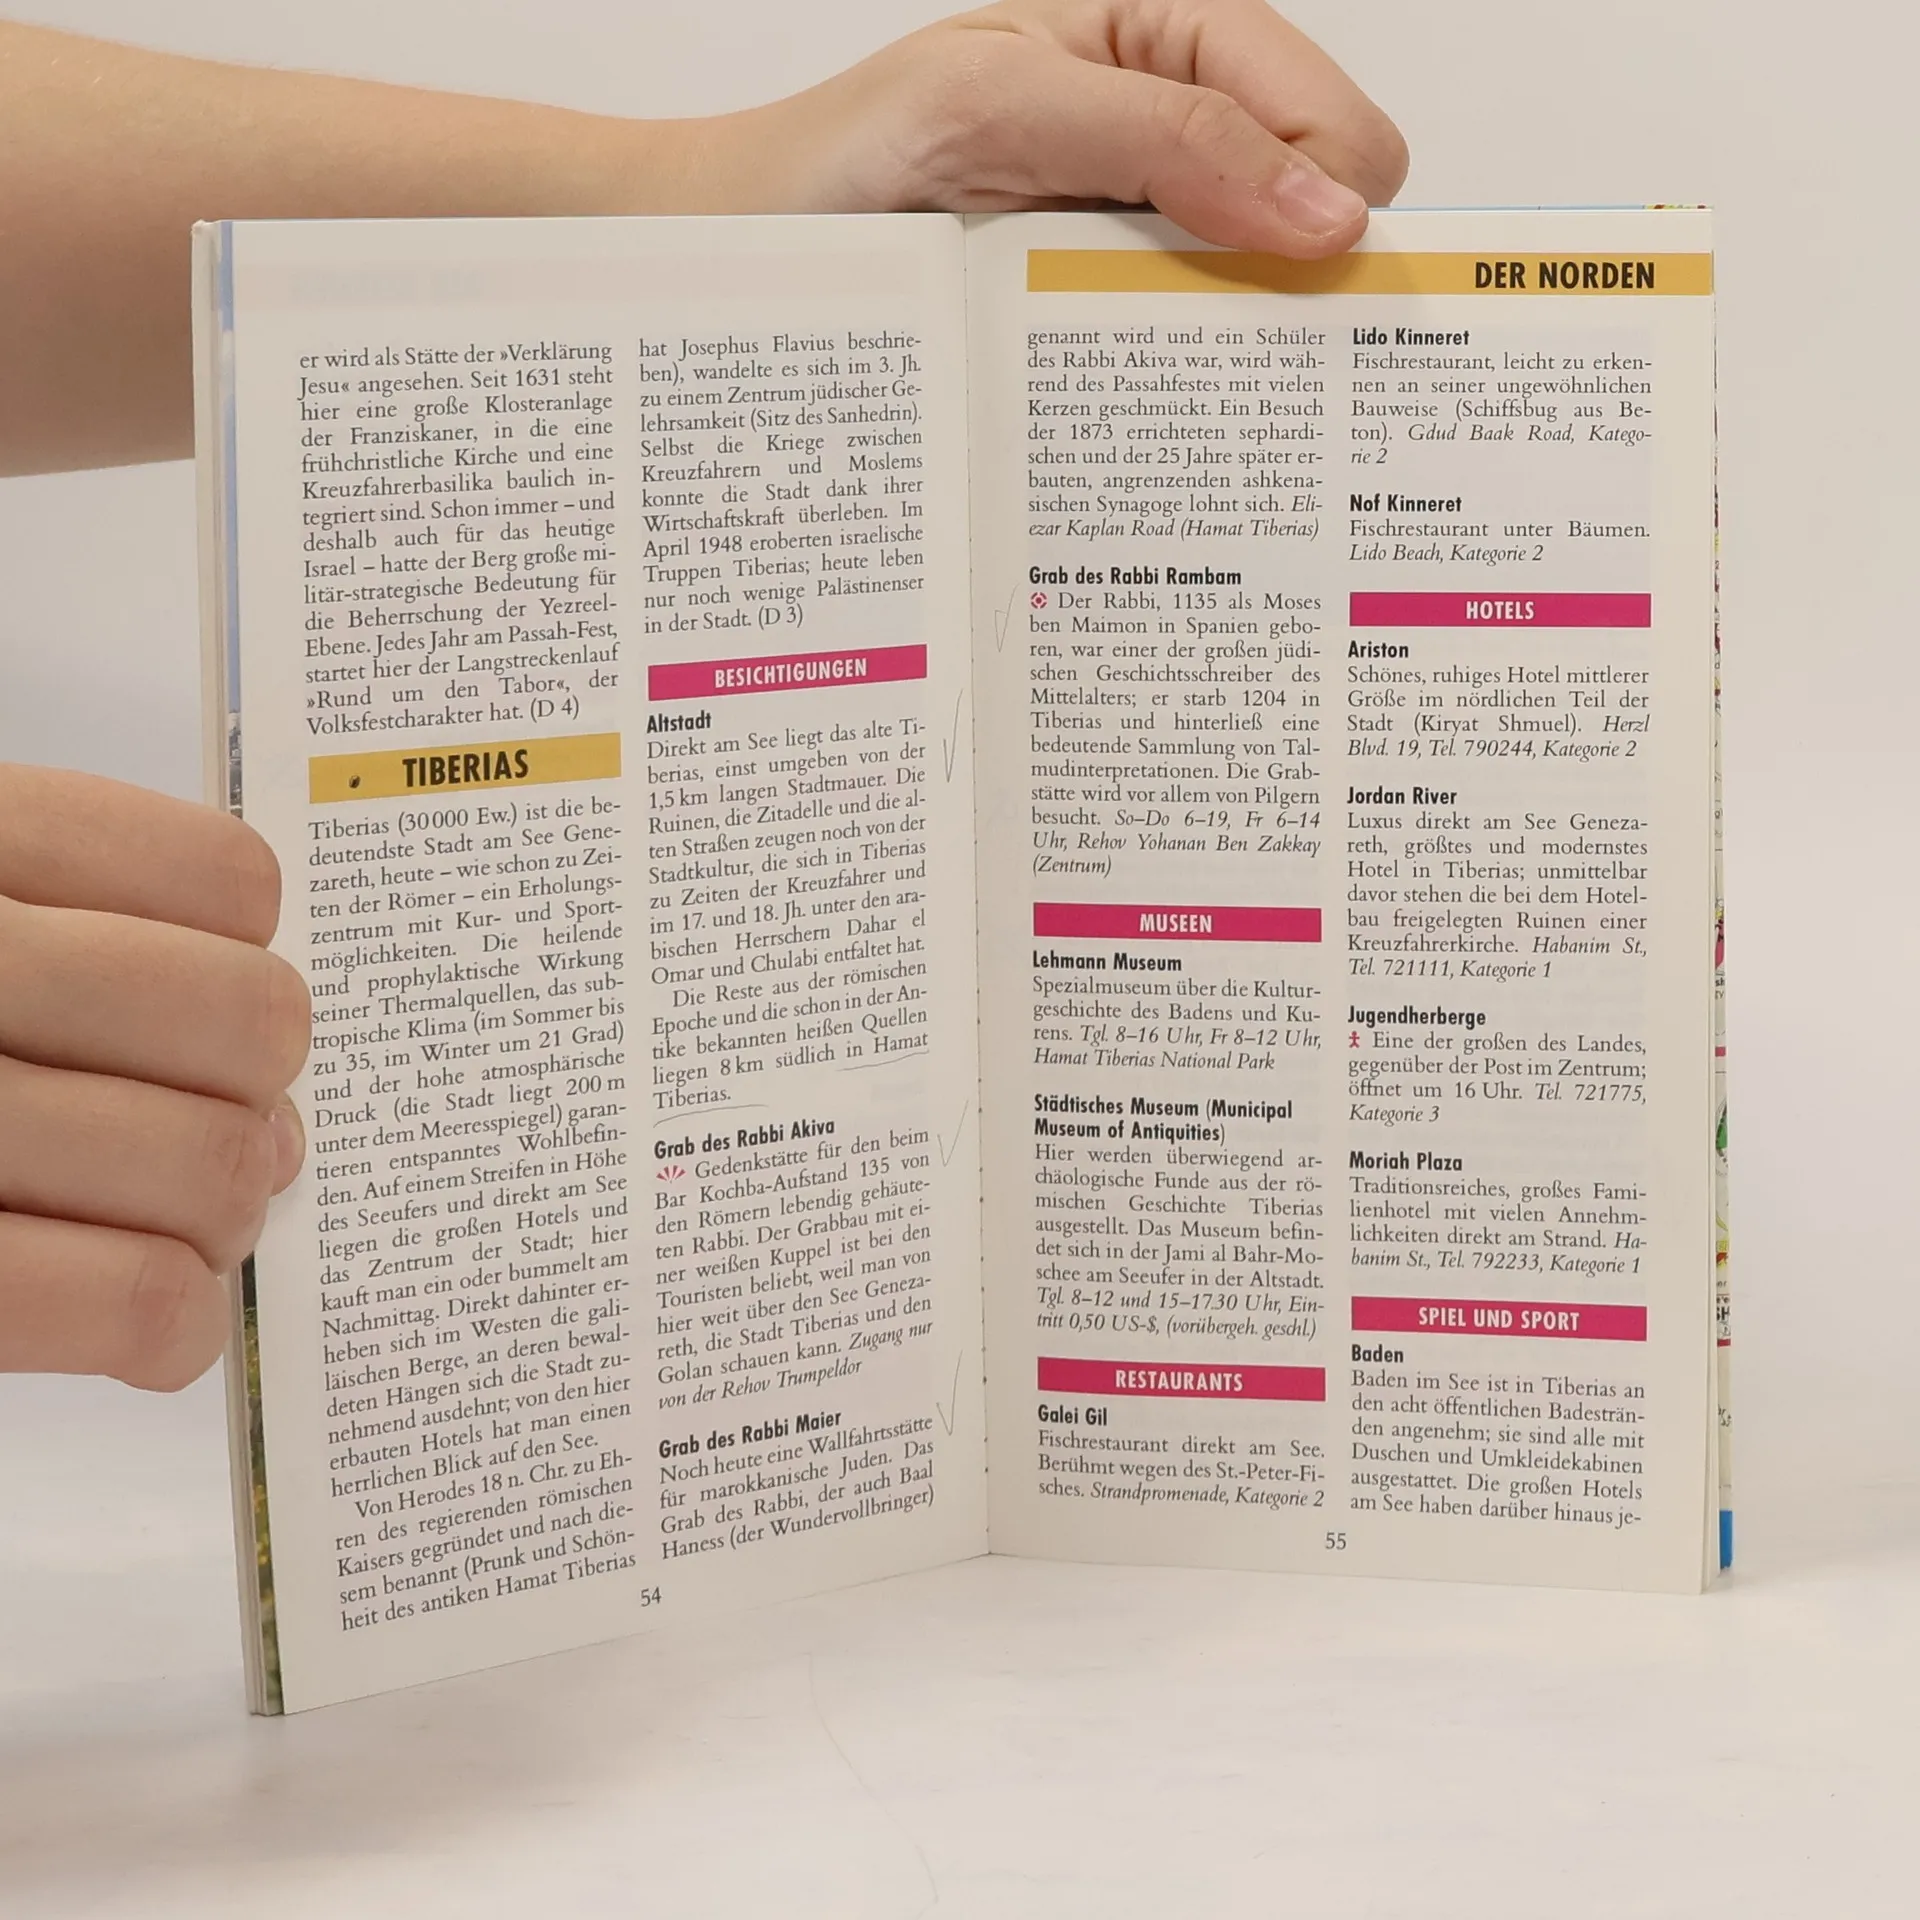 er wird als Stätte der »Verklärung
Jesu« angesehen. Seit 1631 steht
hier eine große Klosteranlage
der Franziskaner, in die eine
frühchristliche Kirche und eine
Kreuzfahrerbasilika baulich in-
tegriert sind. Schon immer – und
deshalb auch für das heutige
Israel – hatte der Berg große mi-
litär-strategische Bedeutung für
die Beherrschung der Yezreel-
Ebene. Jedes Jahr am Passah-Fest,
startet hier der Langstreckenlauf
»Rund um den Tabor«, der
Volksfestcharakter hat. (D 4)
TIBERIAS
Tiberias (30 000 Ew.) ist die be-
deutendste Stadt am See Gene-
zareth, heute – wie schon zu Zei-
ten der Römer – ein Erholungs-
zentrum mit Kur- und Sport-
möglichkeiten. Die heilende
und prophylaktische Wirkung
seiner Thermalquellen, das sub-
tropische Klima (im Sommer bis
zu 35, im Winter um 21 Grad)
und der hohe atmosphärische
Druck (die Stadt liegt 200 m
unter dem Meeresspiegel) garan-
tieren entspanntes Wohlbefin-
den. Auf einem Streifen in Höhe
des Seeufers und direkt am See
liegen die großen Hotels und
das Zentrum der Stadt; hier
kauft man ein oder bummelt am
Nachmittag. Direkt dahinter er-
heben sich im Westen die gali-
läischen Berge, an deren bewal-
deten Hängen sich die Stadt zu-
nehmend ausdehnt; von den hier
erbauten Hotels hat man einen
herrlichen Blick auf den See.
Von Herodes 18 n. Chr. zu Eh-
ren des regierenden römischen
Kaisers gegründet und nach die-
sem benannt (Prunk und Schön-
heit des antiken Hamat Tiberias
hat Josephus Flavius beschrie-
ben), wandelte es sich im 3. Jh.
zu einem Zentrum jüdischer Ge-
lehrsamkeit (Sitz des Sanhedrin).
Selbst die Kriege zwischen
Kreuzfahrern und Moslems
konnte die Stadt dank ihrer
Wirtschaftskraft überleben. Im
April 1948 eroberten israelische
Truppen Tiberias; heute leben
nur noch wenige Palästinenser
in der Stadt. (D 3)
BESICHTIGUNGEN
Altstadt
Direkt am See liegt das alte Ti-
berias, einst umgeben von der
1,5 km langen Stadtmauer. Die
Ruinen, die Zitadelle und die al-
ten Straßen zeugen noch von der
Stadtkultur, die sich in Tiberias
zu Zeiten der Kreuzfahrer und
im 17. und 18. Jh. unter den ara-
bischen Herrschern Dahar el
Omar und Chulabi entfaltet hat.
Die Reste aus der römischen
Epoche und die schon in der An-
tike bekannten heißen Quellen
liegen 8 km südlich in Hamat
Tiberias.
Grab des Rabbi Akiva
Gedenkstätte für den beim
Bar Kochba-Aufstand 135 von
den Römern lebendig gehäute-
ten Rabbi. Der Grabbau mit ei-
ner weißen Kuppel ist bei den
Touristen beliebt, weil man von
hier weit über den See Geneza-
reth, die Stadt Tiberias und den
Golan schauen kann. Zugang nur
von der Rehov Trumpeldor
Grab des Rabbi Maier
Noch heute eine Wallfahrtsstätte
für marokkanische Juden. Das
Grab des Rabbi, der auch Baal
Haness (der Wundervollbringer)
54
DER NORDEN
genannt wird und ein Schüler
des Rabbi Akiva war, wird wäh-
rend des Passahfestes mit vielen
Kerzen geschmückt. Ein Besuch
der 1873 errichteten sephardi-
schen und der 25 Jahre später er-
bauten, angrenzenden ashkena-
sischen Synagoge lohnt sich. Eli-
ezar Kaplan Road (Hamat Tiberias)
Grab des Rabbi Rambam
Der Rabbi, 1135 als Moses
ben Maimon in Spanien gebo-
ren, war einer der großen jüdi-
schen Geschichtsschreiber des
Mittelalters; er starb 1204 in
Tiberias und hinterließ eine
bedeutende Sammlung von Tal-
mudinterpretationen. Die Grab-
stätte wird vor allem von Pilgern
besucht. So–Do 6–19, Fr 6–14
Uhr, Rehov Yohanan Ben Zakkay
(Zentrum)
MUSEEN
Lehmann Museum
Spezialmuseum über die Kultur-
geschichte des Badens und Ku-
rens. Tgl. 8–16 Uhr, Fr 8–12 Uhr,
Hamat Tiberias National Park
Städtisches Museum (Municipal
Museum of Antiquities)
Hier werden überwiegend ar-
chäologische Funde aus der rö-
mischen Geschichte Tiberias
ausgestellt. Das Museum befin-
det sich in der Jami al Bahr-Mo-
schee am Seeufer in der Altstadt.
Tgl. 8–12 und 15–17.30 Uhr, Ein-
tritt 0,50 US-$, (vorübergeh. geschl.)
RESTAURANTS
Galei Gil
Fischrestaurant direkt am See.
Berühmt wegen des St.-Peter-Fi-
sches. Strandpromenade, Kategorie 2
Lido Kinneret
Fischrestaurant, leicht zu erken-
nen an seiner ungewöhnlichen
Bauweise (Schiffsbug aus Be-
ton). Gdud Baak Road, Katego-
rie 2
Nof Kinneret
Fischrestaurant unter Bäumen.
Lido Beach, Kategorie 2
HOTELS
Ariston
Schönes, ruhiges Hotel mittlerer
Größe im nördlichen Teil der
Stadt (Kiryat Shmuel). Herzl
Blvd. 19, Tel. 790244, Kategorie 2
Jordan River
Luxus direkt am See Geneza-
reth, größtes und modernstes
Hotel in Tiberias; unmittelbar
davor stehen die bei dem Hotel-
bau freigelegten Ruinen einer
Kreuzfahrerkirche. Habanim St.,
Tel. 721111, Kategorie 1
Jugendherberge
Eine der großen des Landes,
gegenüber der Post im Zentrum;
öffnet um 16 Uhr. Tel. 721775,
Kategorie 3
Moriah Plaza
Traditionsreiches, großes Fami-
lienhotel mit vielen Annehm-
lichkeiten direkt am Strand. Ha-
banim St., Tel. 792233, Kategorie 1
SPIEL UND SPORT
Baden
Baden im See ist in Tiberias an
den acht öffentlichen Badesträn-
den angenehm; sie sind alle mit
Duschen und Umkleidekabinen
ausgestattet. Die großen Hotels
am See haben darüber hinaus je-
55